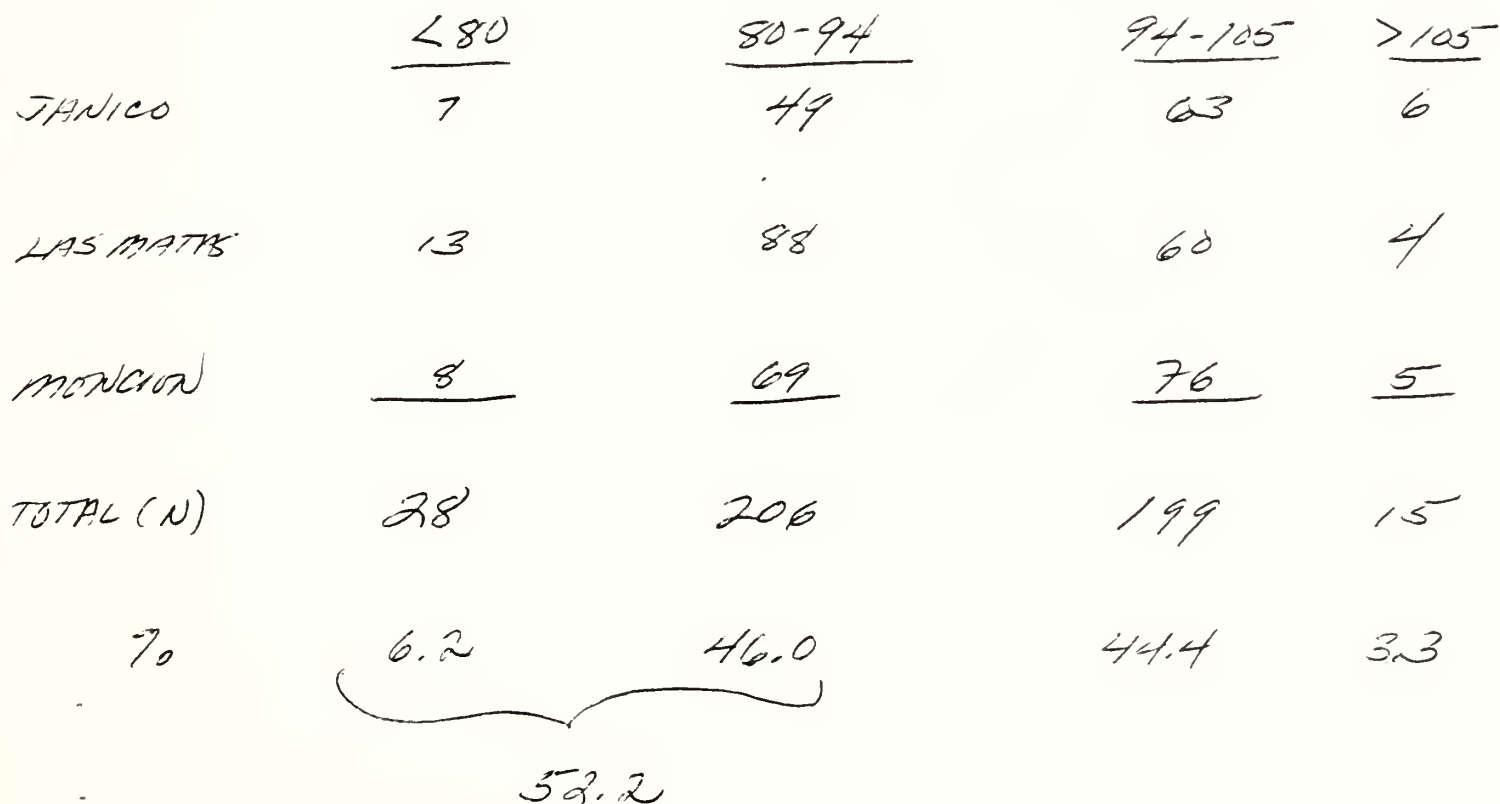 <80 80-94 94-105 >105
JANICO 7 49 63 6
LAS MATAS 13 88 60 4
MONCION 8 69 76 5
TOTAL (N) 28 206 199 15
% 6.2 46.0 44.4 3.3
52.2